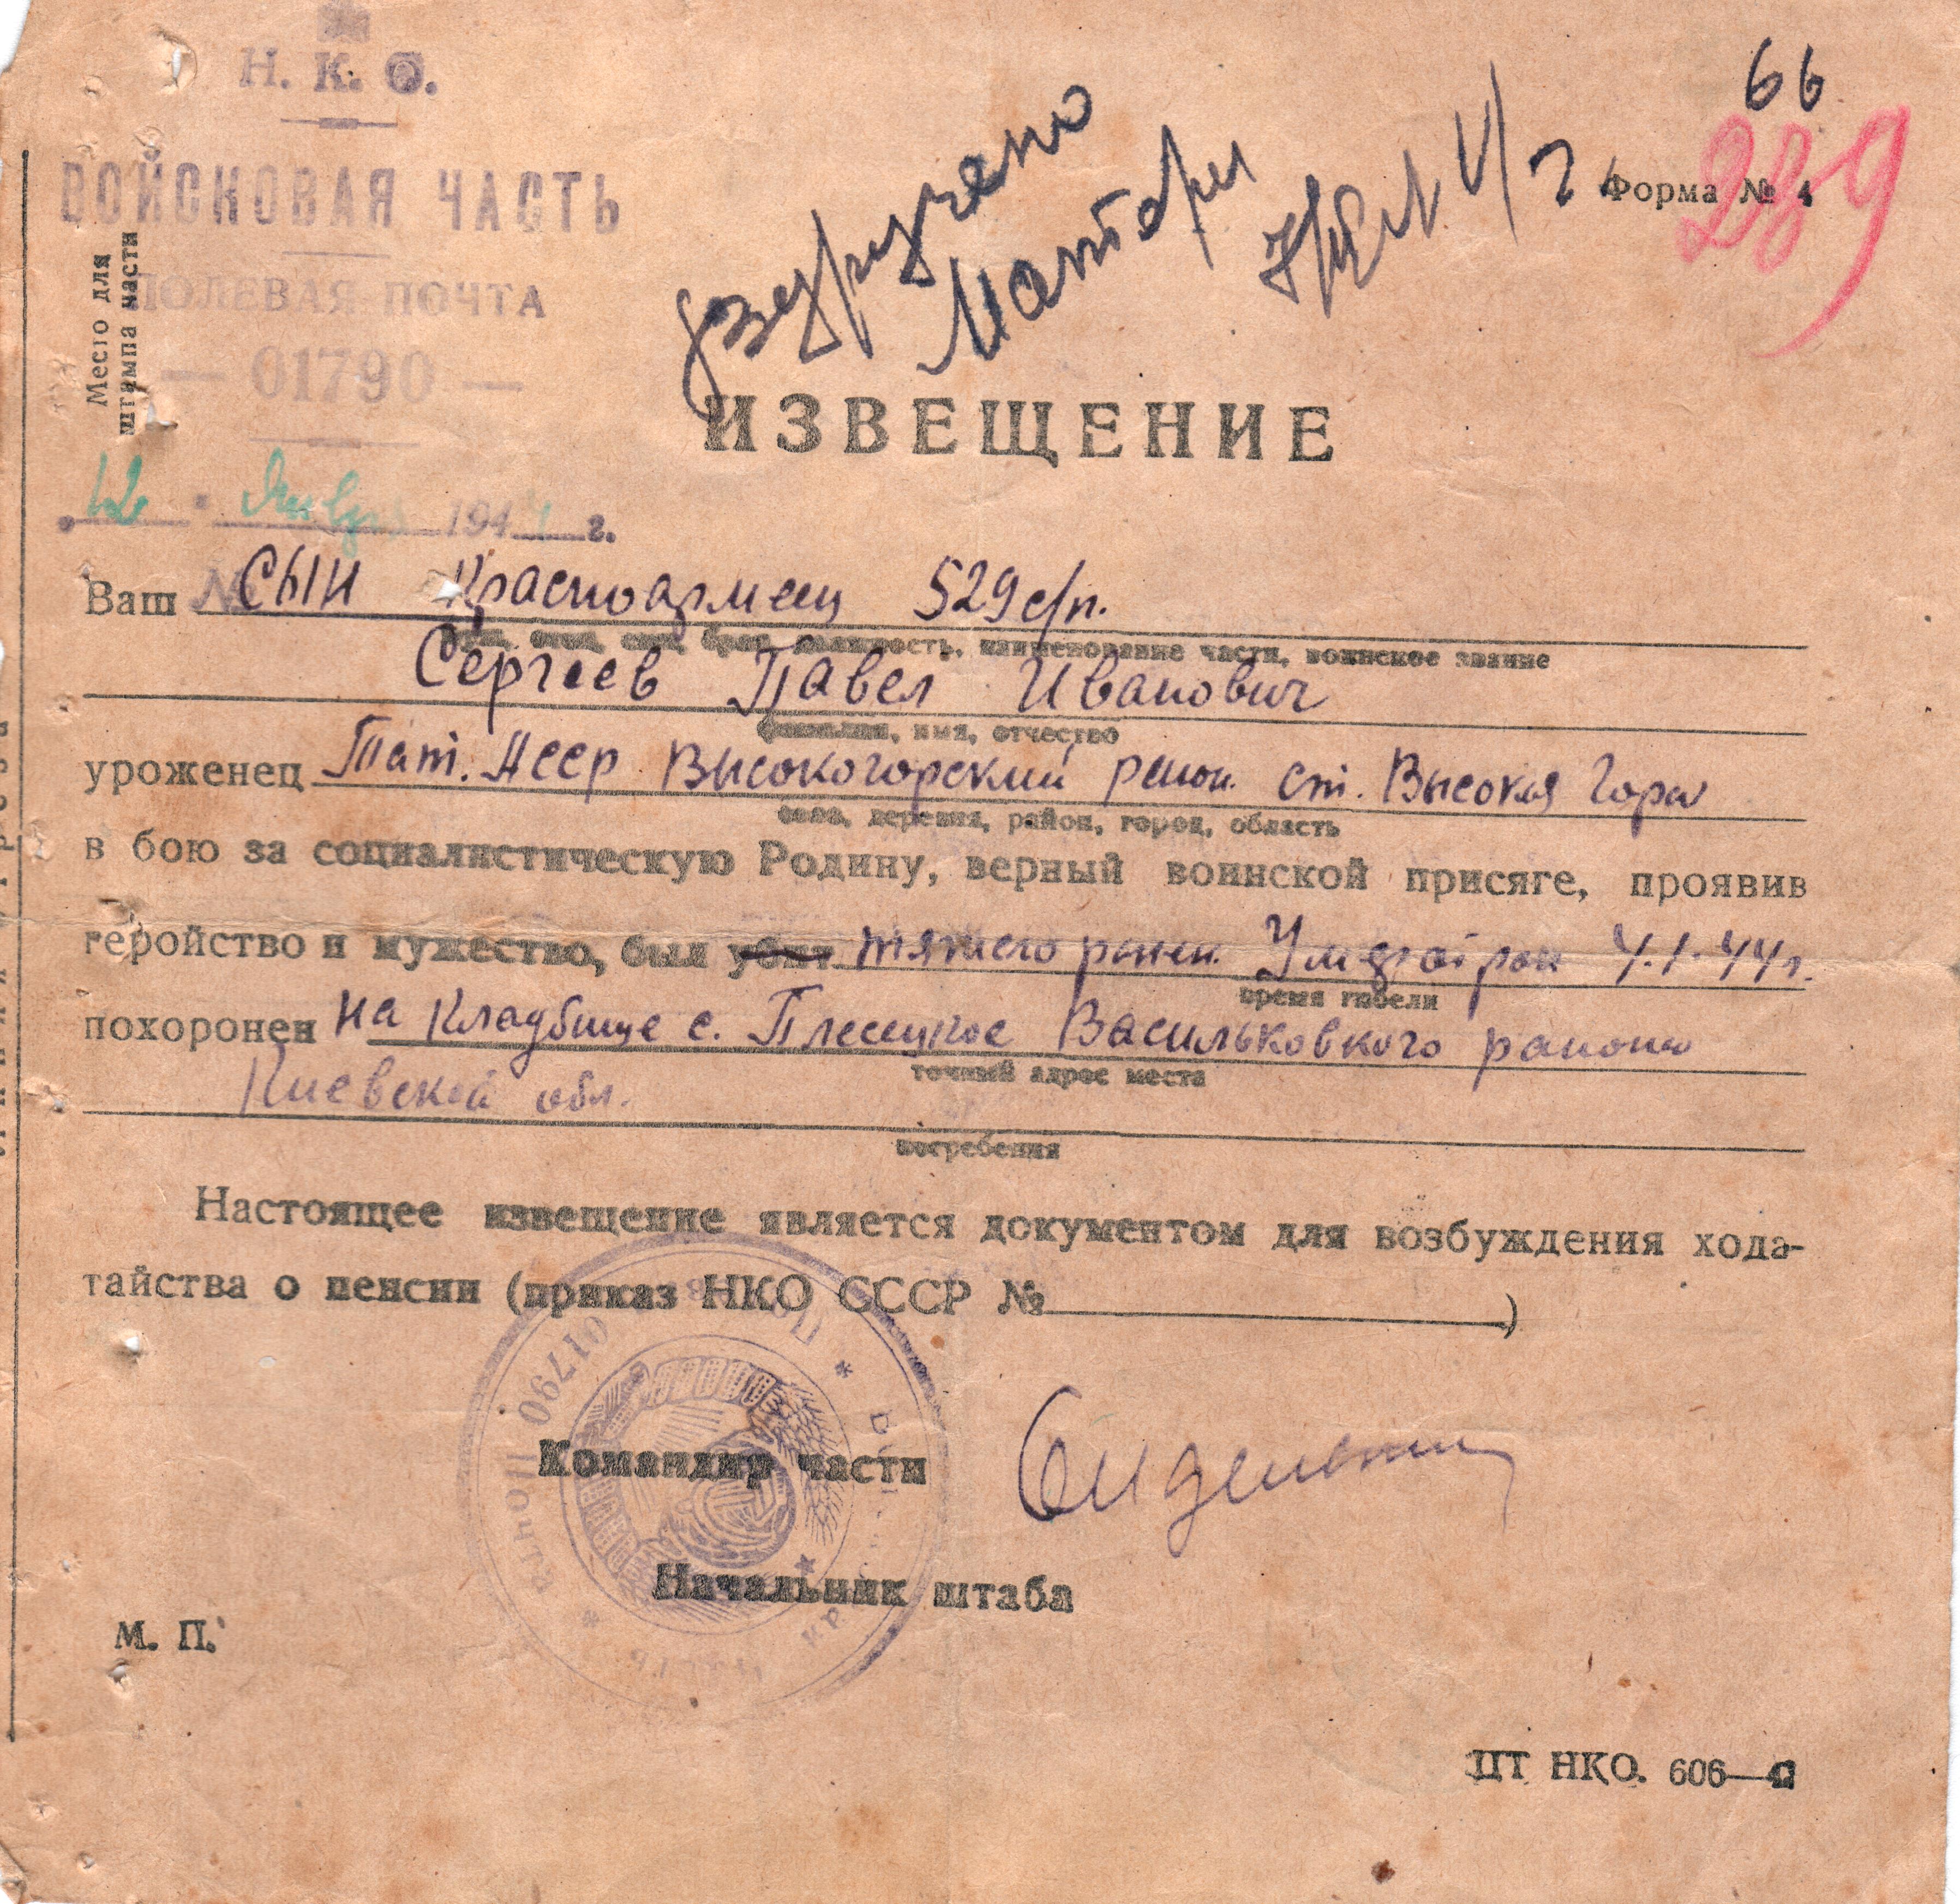 Н. К. О.
ВОЙСКОВАЯ ЧАСТЬ
ПОЛЕВАЯ ПОЧТА
— 01790 —
Место для
штампа части
66
289
Форма № 4
ИЗВЕЩЕНИЕ
12 Января 1944 г.
Ваш сын Красноармеец 529 с/п.
муж, отец, сын, брат, должность, наименование части, воинское звание
Сергеев Павел Иванович
фамилия, имя, отчество
уроженец Тат. Асср Высокогорский район ст. Высокая Гора
село, деревня, район, город, область
в бою за социалистическую Родину, верный воинской присяге, проявив
геройство и мужество, был убит тяжело ранен. Умер от ран 4.1.44 г.
время гибели
похоронен на кладбище с. Плесецкое Васильковкого района
точный адрес места
Киевской обл.
погребения
Настоящее извещение является документом для возбуждения хода-
тайства о пенсии (приказ НКО СССР № )
01790 ПОЧТА
Командир части
Начальник штаба
М. П.
ЦТ НКО. 606—